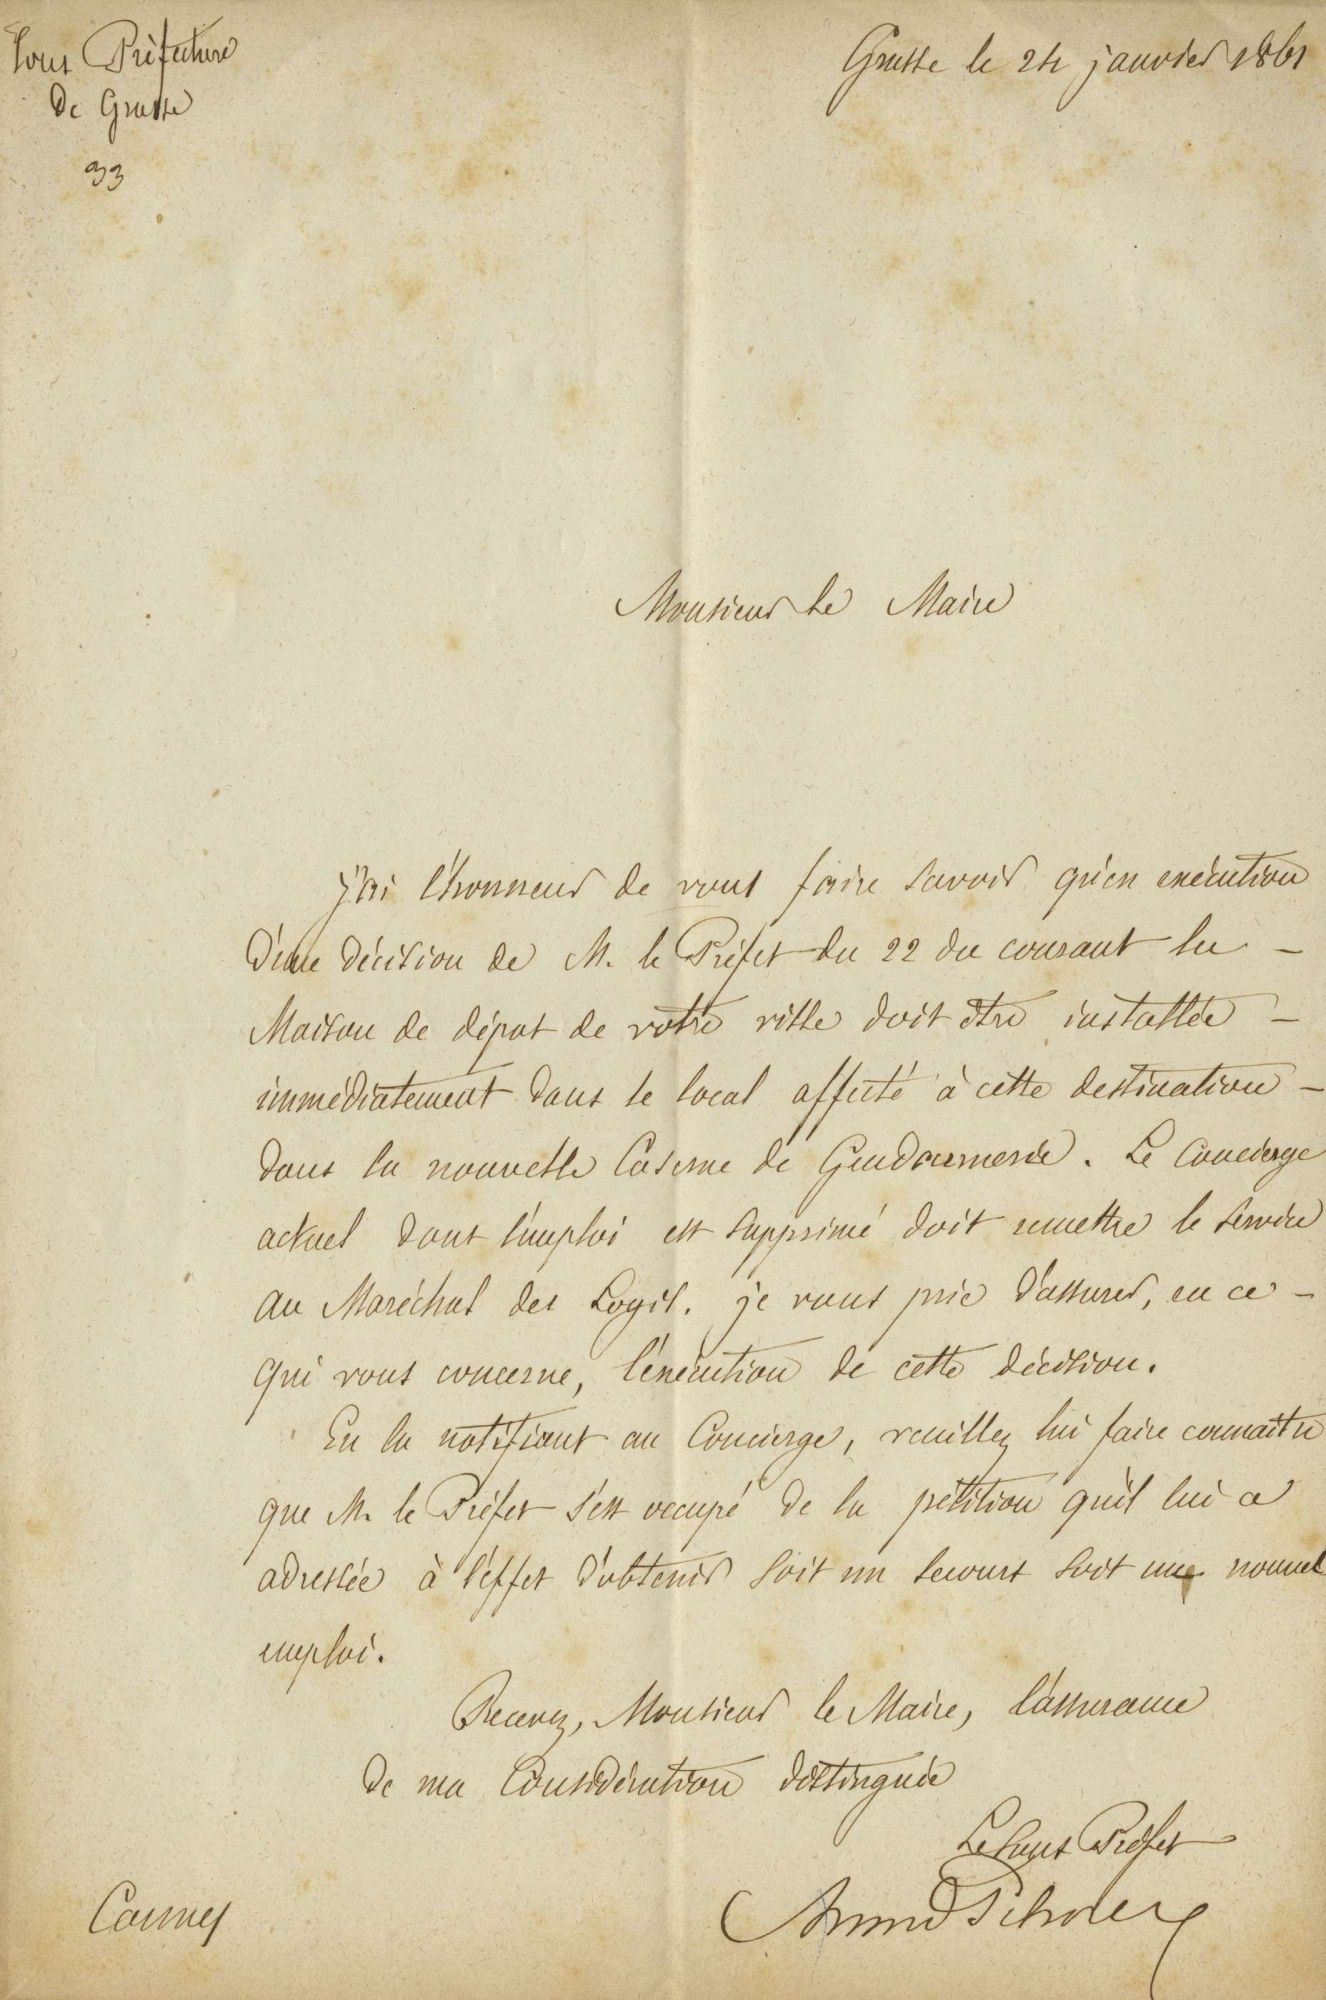 Sous Préfecture
De Grasse
33
Grasse le 24 janvier 1861
Monsieur le Maire
j'ai l'honneur de vous faire savoir qu'en exécution
d'une décision de M. le Préfet du 22 du courant la -
Maison de dépot de votre ville doit être installée -
immédiatement dans le local affecté à cette destination -
dans la nouvelle Caserne de Gendarmerie. Le Concierge
actuel dont l'emploi est supprimé doit remettre le service
au Maréchal des Logis. je vous prie d'assurer, en ce -
qui vous concerne, l'exécution de cette décision.
En la notifiant au Concierge, veuillez lui faire connaitre
que M. le Préfet s'est occupé de la pétition qu'il lui a
adressée à l'effet d'obtenir soit un secours soit un nouvel
emploi.
Recevez, Monsieur le Maire, l'assurance
de ma Considération distinguée
Le Sous Préfet
Cannes